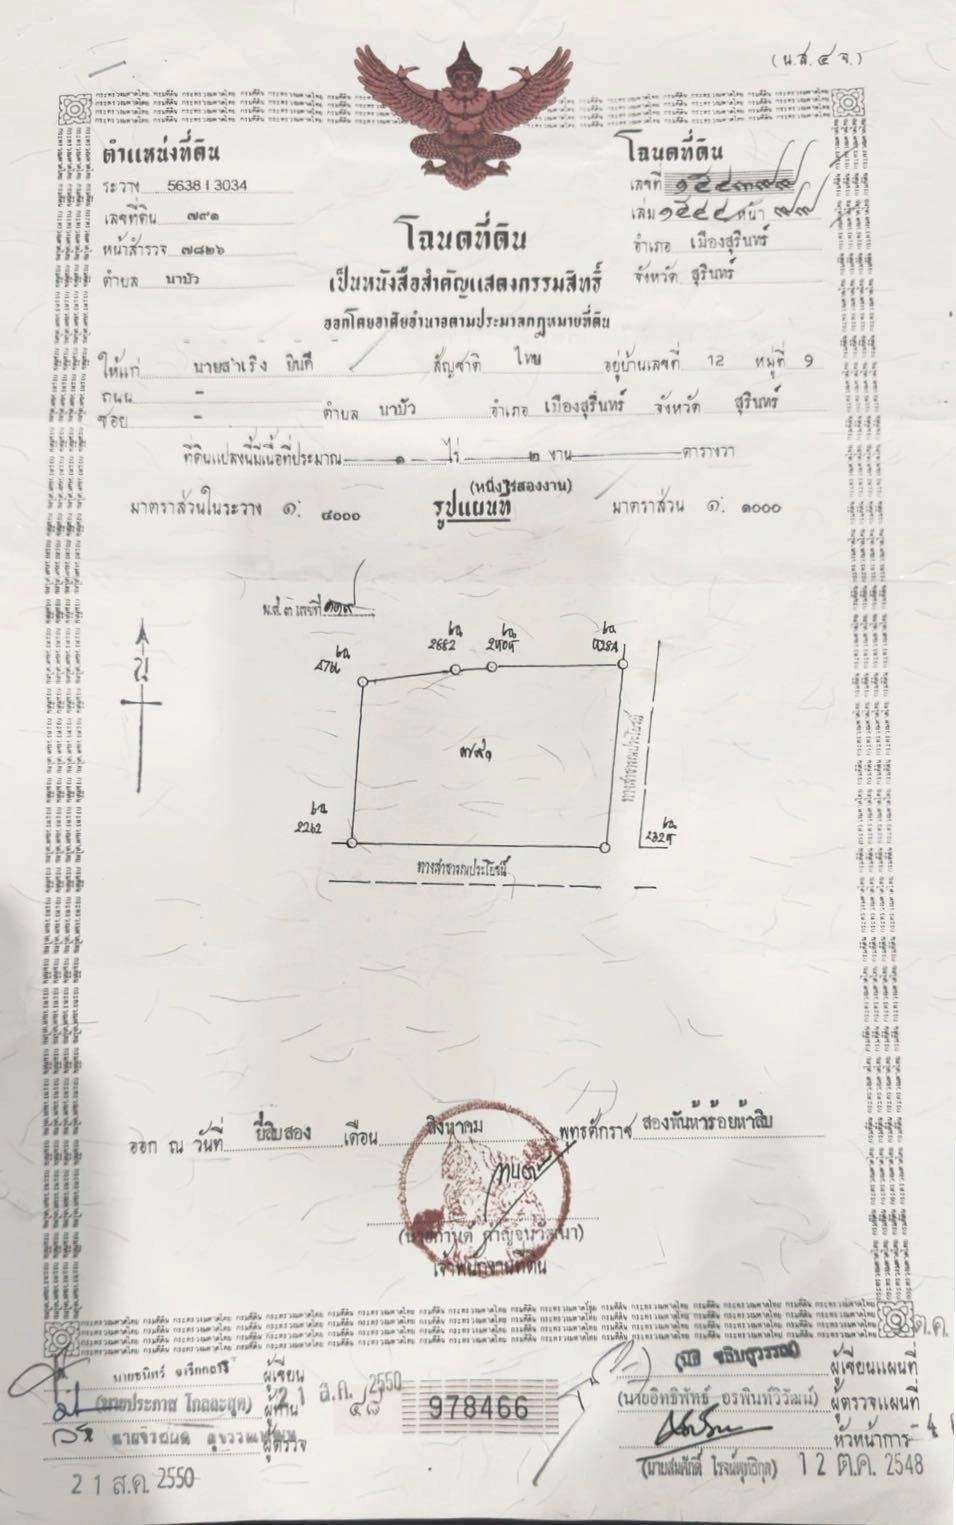 (น.ส.๔ จ.)
ตำแหน่งที่ดิน
ระวาง 5638 I 3034
เลขที่ดิน ๗๙๑
หน้าสำรวจ ๗๘๒๖
ตำบล นาบัว
โฉนดที่ดิน
เลขที่ ๑๕๔๓๙๙
เล่ม ๑๕๔๔ หน้า ๙๙
อำเภอ เมืองสุรินทร์
จังหวัด สุรินทร์
โฉนดที่ดิน
เป็นหนังสือสำคัญแสดงกรรมสิทธิ์
ออกโดยอาศัยอำนาจตามประมวลกฎหมายที่ดิน
ให้แก่ นายสำเริง ยินดี สัญชาติ ไทย อยู่บ้านเลขที่ 12 หมู่ที่ 9
ถนน -
ซอย - ตำบล นาบัว อำเภอ เมืองสุรินทร์ จังหวัด สุรินทร์
ที่ดินแปลงนี้มีเนื้อที่ประมาณ ๑ ไร่ ๒ งาน ตารางวา
(หนึ่งไร่สองงาน)
มาตราส่วนในระวาง ๑: ๔๐๐๐ รูปแผนที่ มาตราส่วน ๑: ๑๐๐๐
น.ส.๓ เลขที่
น
๗๙๑
ทางสาธารณประโยชน์
2262
ทางสาธารณประโยชน์
ออก ณ วันที่ ยี่สิบสอง เดือน สิงหาคม พุทธศักราช สองพันห้าร้อยห้าสิบ
(นายกานต์ กาญจนวัฒนา)
เจ้าพนักงานที่ดิน
ผู้เขียน
(นายประภาส โกลละสูต) ผู้ทาน
ผู้ตรวจ
21 ส.ค. 2550
21 ส.ค. 2550
978466
ผู้เขียนแผนที่
(นายอิทธิพัทธ์ อรพินท์วิวัฒน์) ผู้ตรวจแผนที่
หัวหน้าการ
(นายสมศักดิ์ โรจน์พุทธิกุล) 12 ต.ค. 2548
ต.ค.